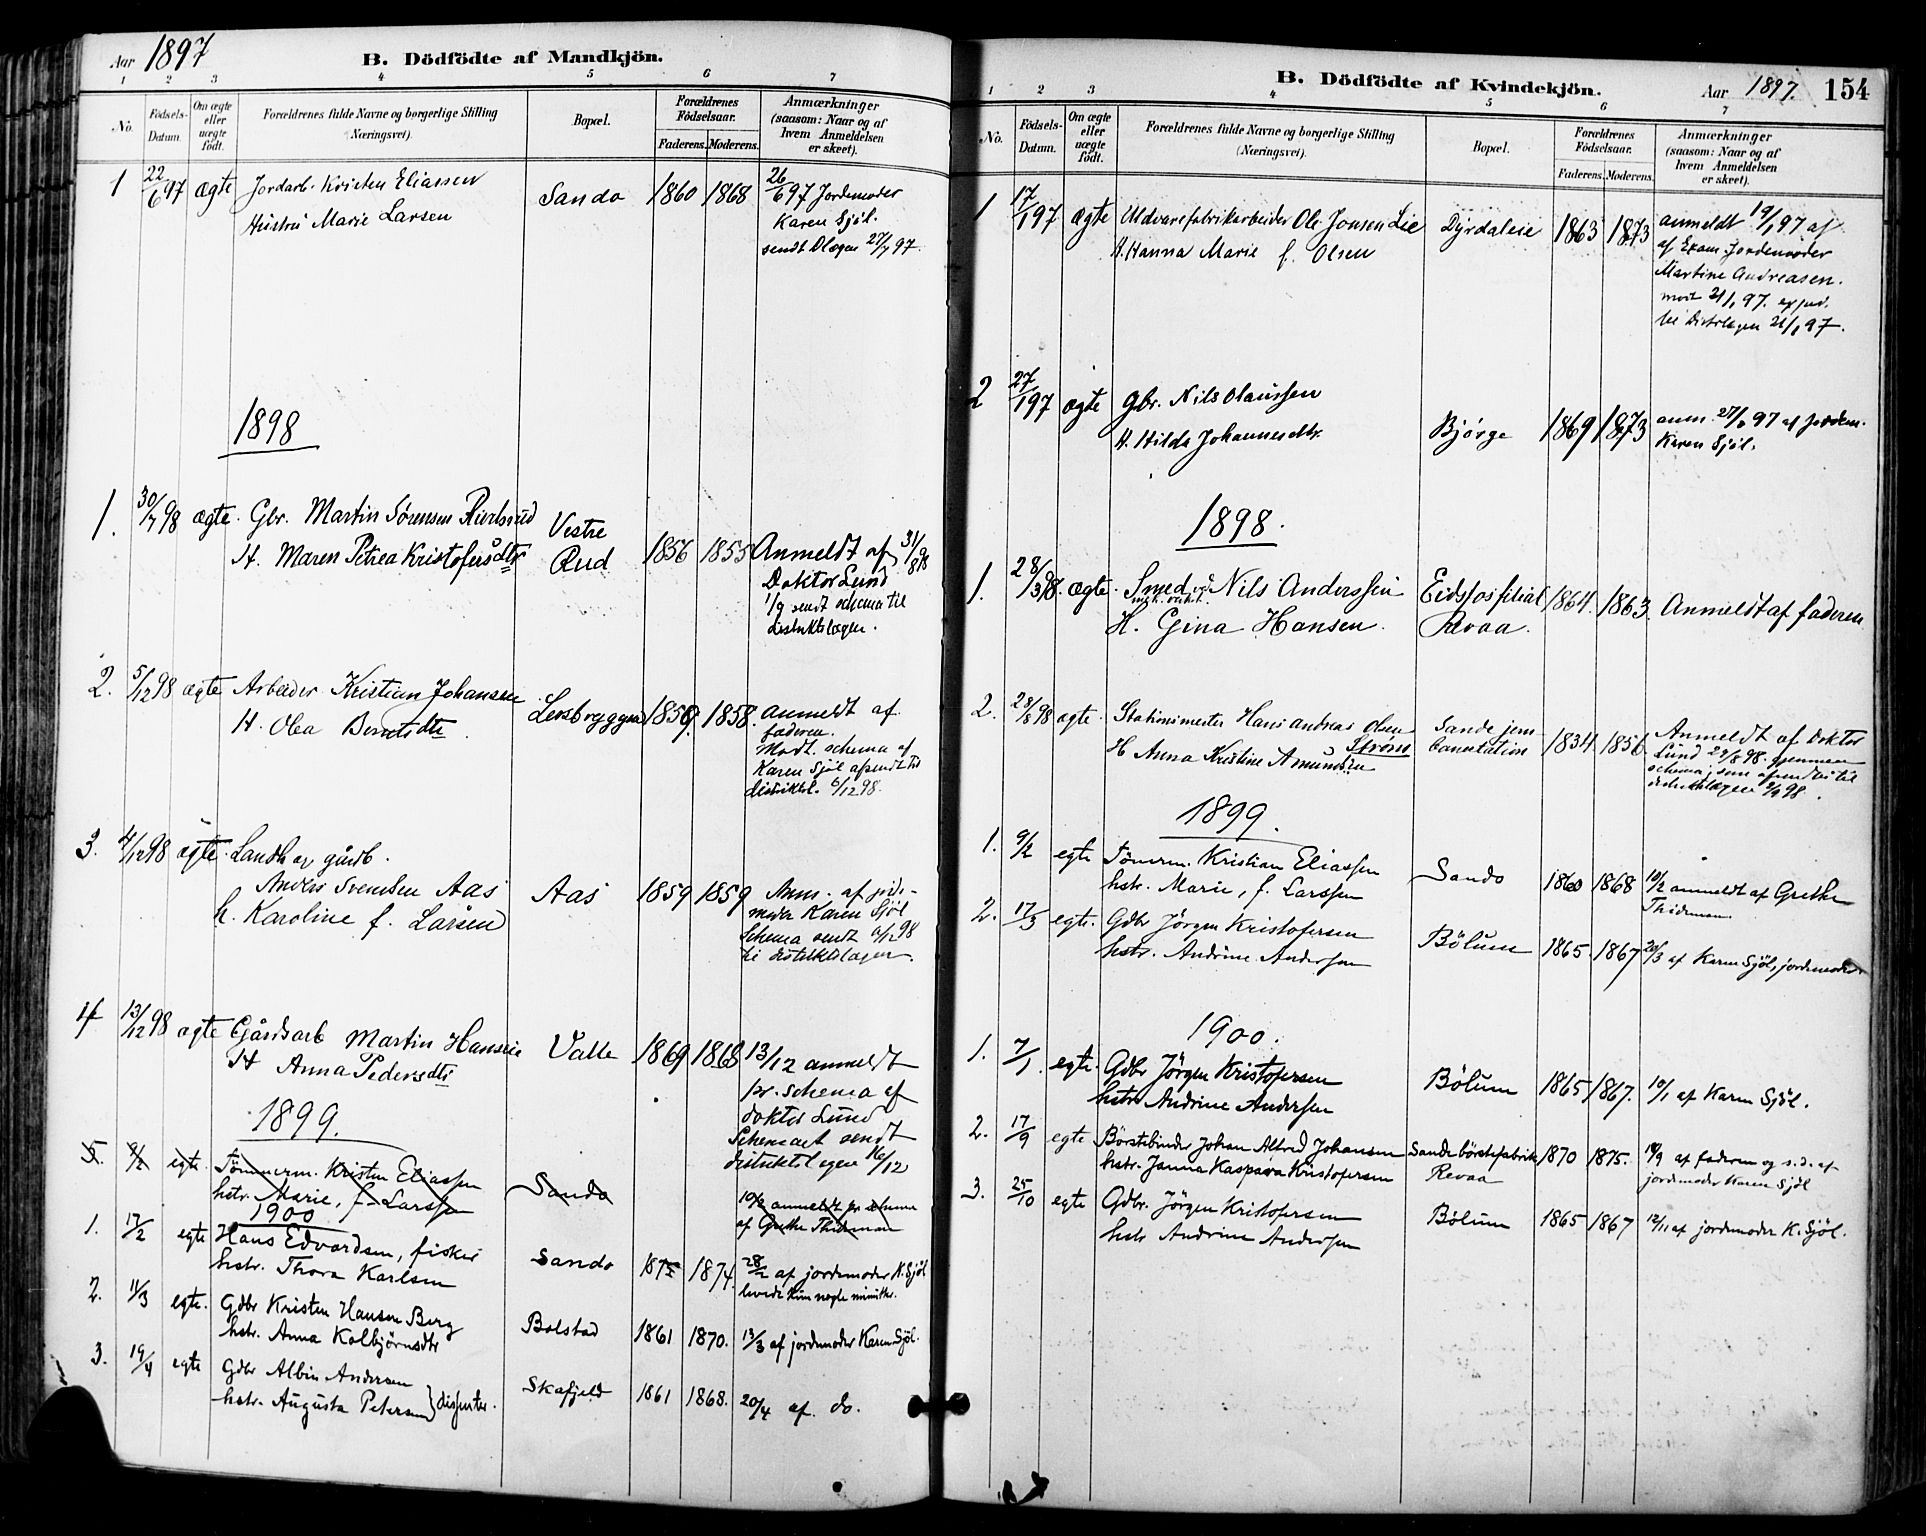 Aar 1897
B. Dödfödte af Mandkjön.
1 2 3 4 5 6 7
No.
Födsels-
Datum.
Om ægte
eller
uægte
födt.
Forældrenes fulde Navne og borgerlige Stilling
(Næringsvei).
Bopæl.
Forældrenes
Födselsaar.
Faderens. Moderens.
Anmærkninger
(saasom: Naar og af
hvem Anmeldelsen
er skeet).
1 22/6 97 ægte Jordarb. Kristen Eliassen
Hustru Marie Larsen
Sando 1860 1868
26/6 97 Jordemoder
Karen Sjöl.
sendt Dlægen 27/7 97.
1898
1. 30/7 98 ægte. Gbr. Martin Sörensen
H. Maren Petrea Kristofersdtr
Vestre
Rud
1856 1855 Anmeldt af 31/8 98
Doktor Lund
1/9 sendt schema til
distriktslægen.
2. 5/12 98 ægte Arbeider Kristian Johansen
H. Olea Berntsdtr.
Lersbryggen 1859. 1858. anmeldt af
faderen.
Modt. schema af
Karen Sjöl afsendt til
distriktsl. 6/12 98.
3. 4/12 98 ægte. Landh og gårdb.
Anders Svendsen Aas
h. Karoline f. Larsen
Aas 1859 1859 Anm. af jorde-
moder Karen Sjöl
Schema sendt 6/12 98
til distriktslægen.
4 13/12 98 ægte Gårdsarb Martin Hansen
H Anna Pedersdtr
Valle 1869 1868 13/12 anmeldt
pr. schema af
doktor Lund
Schemaet sendt
distriktslægen 16/12
1899.
5. 9/2 egte. Tömmerm. Kristen Eliassen
hstr. Marie, f. Larssen
Sando
10/2 anmeldt pr schema
af Grethe Thideman
1900
1. 17/2 egte Hans Edvardsen, fisker
hstr. Thora Karlsen
Sando 1875 1874. 28/2 af jordemoder K. Sjöl
levede kun nogle minutter.
2. 11/3 egte. Gdbr Kristen Hansen Berg
hstr. Anna Kolbjørnsdtr
Bolstad 1861 1870. 13/3 af jordmoder Karen Sjöl.
3. 19/4 egte Gdbr Albin Andersen
hstr. Augusta Petersen } dissenter.
Skafjeld 1861 1868. 20/4 af do.
B. Dödfödte af Kvindekjön.
Aar 1897. 154
1 2 3 4 5 6 7
No.
Födsels-
Datum.
Om ægte
eller
uægte
födt.
Forældrenes fulde Navne og borgerlige Stilling
(Næringsvei).
Bopæl.
Forældrenes
Födselsaar.
Faderens. Moderens.
Anmærkninger
(saasom: Naar og af
hvem Anmeldelsen
er skeet).
1 17/1 97 ægte Uldvarefabrikarbeider Ole Jonsen Lie
H. Hanna Marie f. Olsen
Dyrdaleie 1863 1873 anmeldt 19/1 97 af
af Exam. Jordemoder
Martine Andreasen.
modt 21/1 97.
til Distrlægen 21/1 97.
2 27/1 97 ægte Gbr. Nils Olaussen
H. Hilda Johannesdtr.
Bjørge 1869 1873 anm. 27/1 97 af Jordem.
Karen Sjöl.
1898.
1. 28/3 98. ægte. Smed ved Nils Anderssen
mek. verkst.
H. Gina Hansen.
Eidsfosfilial
Revaa.
1864. 1863. Anmeldt af faderen
2. 28/8 98 ægte. Stationsmester Hans Andreas Olsen
Ström
H Anna Kristine Amundsen
Sande jern
banestation 1834. 1856. Anmeldt af Doktor
Lund 29/8 98. gjennem
schema, som afsendtes til
distriktslægen 2/9 98.
1899.
1. 9/2 egte Tömmerm. Kristian Eliassen
hstr. Marie, f. Larssen
Sando 1860 1868 10/2 anmeldt af Grethe
Thideman.
2. 17/3 egte. Gdbr Jörgen Kristofersen
hstr. Andrine Andersen
Bölum 1865. 1867 20/3 af Karen Sjöl, jordemoder
1900.
1. 7/1. egte. Gdbr Jörgen Kristofersen
hstr Andrine Andersen
Bölum 1865 1867. 10/1 af Karen Sjöl.
2. 17/9 egte Börstebinder Johan Alfred Johansen
hstr. Janna Kaspara Kristofersen
Sande börstefabrik
Revaa
1870 1875. 18/9 af faderen og s. d. af
jordemoder Karen Sjöl
3. 25/10 egte Gdbr. Jörgen Kristofersen
hstr Andrine Andersen
Bölum 1865 1867 12/11 af jordemoder K. Sjöl.